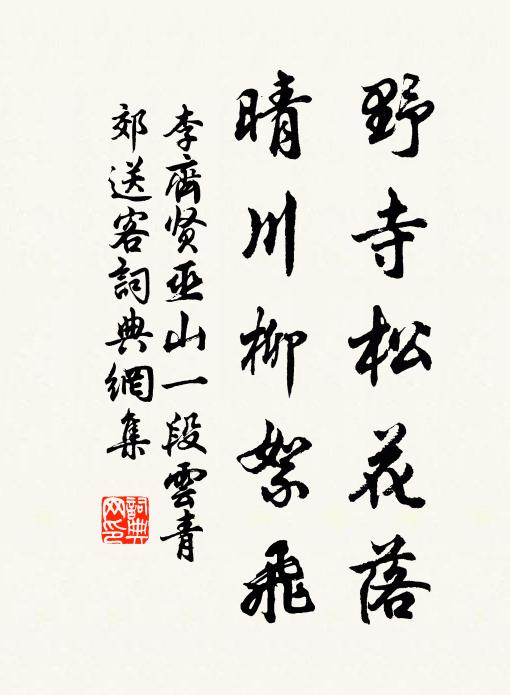 野寺松花落
晴川柳絮飛
李齊贤巫山一段雲青
郊送客詞典網集
詞典
网印